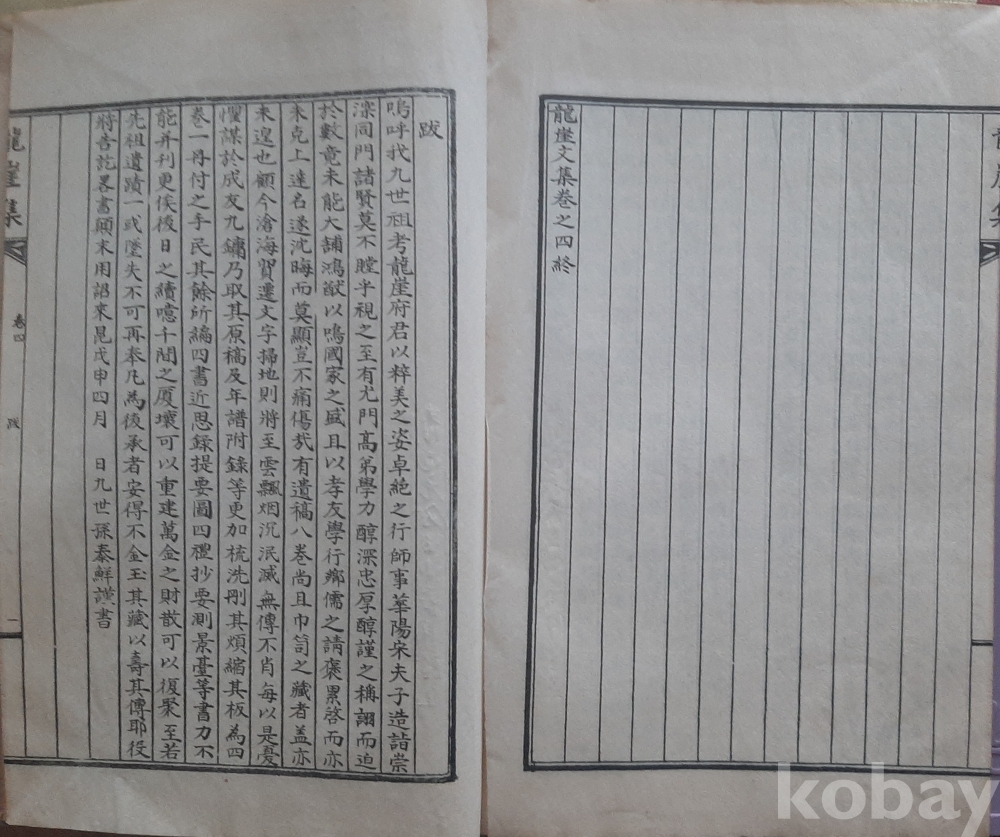 龍崖文集卷之四終
跋
嗚呼我九世祖考龍崖府君以粹美之姿卓絶之行師事華陽宋夫子造詣崇
深同門諸賢莫不瞠乎視之至有尤門高弟學力醇深忠厚醇謹之稱詡而迫
於數竟未能大舖鴻猷以鳴國家之盛且以孝友學行鄕儒之請褒累啓而亦
未克上達名遂沈晦而莫顯豈不痛傷㢤有遺稿八卷尚且巾笥之藏者盖亦
未遑也顧今滄海貿遷文字掃地則將至雲飄烟沉泯滅無傳不肖每以是憂
懼謀於成友九鏞乃取其原稿及年譜附錄等更加梳洗刪其煩縮其板為四
卷一再付之手民其餘所編四書近思錄提要圖四禮抄要測景臺等書力不
能并刊更俟後日之續噫千間之厦壞可以重建萬金之財散可以復聚至若
先祖遺蹟一或墜失不可再奉凡為後承者安得不金玉其藏以壽其傳耶役
將告訖畧書顚末用詔來昆戊申四月　日九世孫泰鮮謹書
龍崖集
卷四
跋
一
kobay